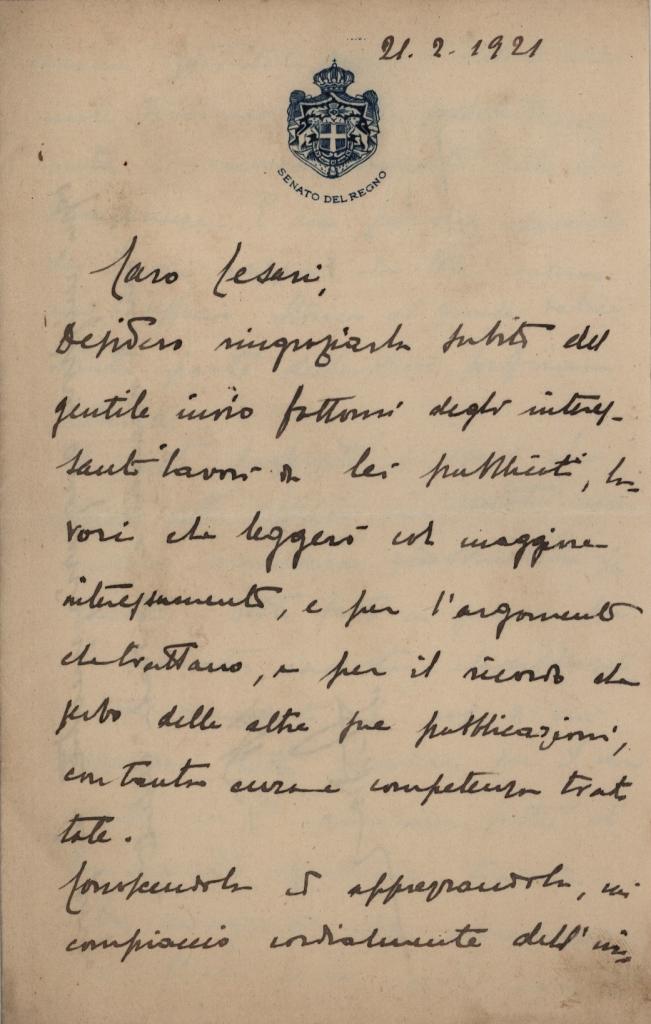 21. 2. 1921
SENATO DEL REGNO
Caro Cesari,
Desidero ringraziarla subito del
gentile invio fattomi degli interes-
santi lavori da lei pubblicati, la-
vori che leggerò col maggiore
interessamento, e per l'argomento
che trattano, e per il ricordo che
serbo delle altre sue pubblicazioni,
con tanta cura e competenza trat
tate.
Conoscendola ed apprezzandola, mi
compiaccio cordialmente dell'